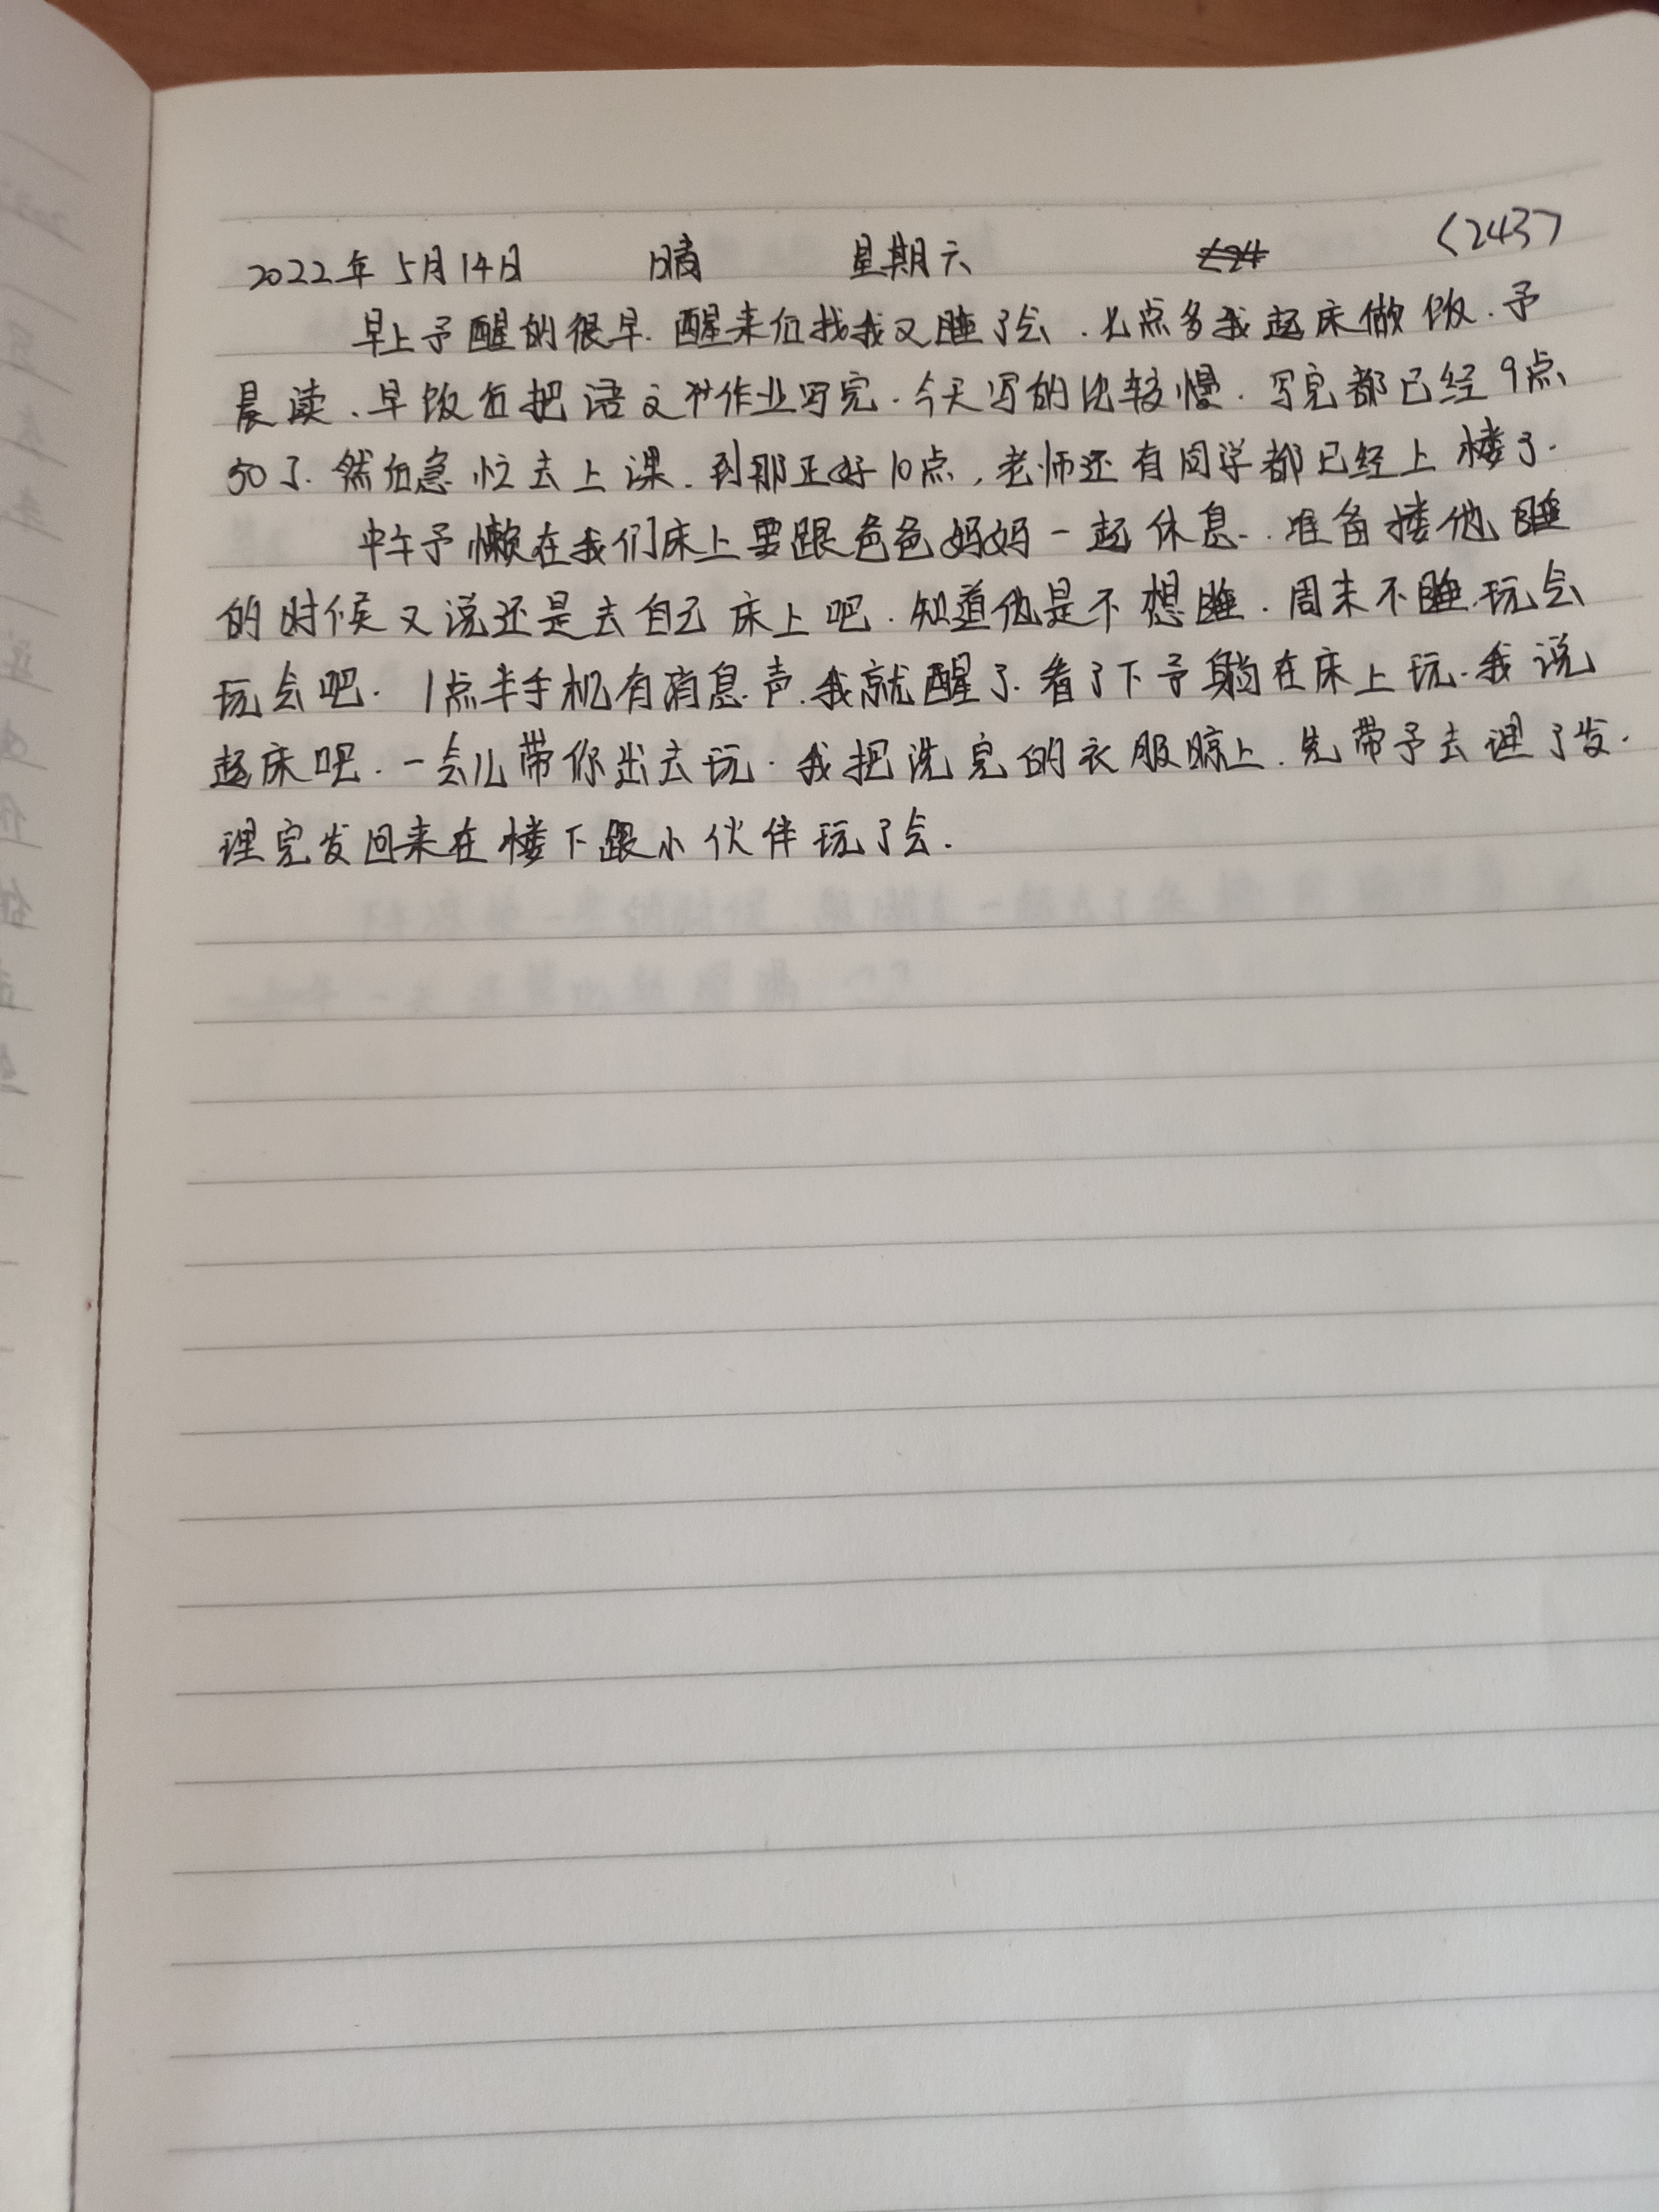 2022年5月14日 晴 星期六 〈243〉
早上予醒的很早.醒来后找我又睡了会.七点多我起床做饭.予
晨读.早饭后把语文作业写完.今天写的比较慢.写完都已经9点
50了.然后急忙去上课.到那正好10点,老师还有同学都已经上楼了.
中午予懒在我们床上要跟爸爸妈妈一起休息.准备搂他睡
的时候又说还是去自己床上吧.知道他是不想睡.周末不睡.玩会
玩会吧.1点半手机有消息声.我就醒了.看了下予躺在床上玩.我说
起床吧.一会儿带你出去玩.我把洗完的衣服晾上.先带予去理了发.
理完发回来在楼下跟小伙伴玩了会.